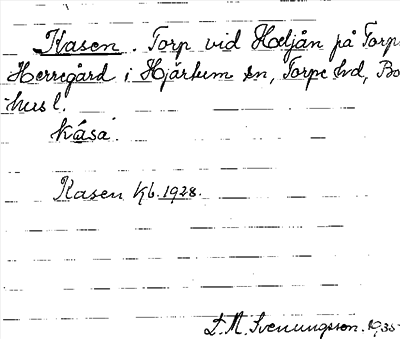 Kasen. Torp vid Hoeljån på Torps
Herregård i Hjärtum sn, Torpe hd, Bo
hus l.
kása.
Kasen Kb. 1928.
D. A. Svenungsson. 1935